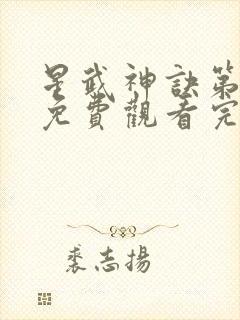 星武神訣第
免費觀看完
裘志揚